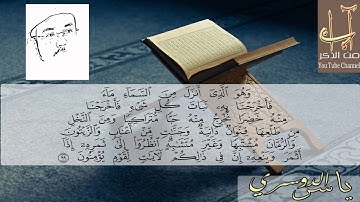 من الذكر
You Tube Channel
وَهُوَ الَّذِي أَنْزَلَ مِنَ السَّمَاءِ مَاءً
فَأَخْرَجْنَا بِهِ نَبَاتَ كُلِّ شَيْءٍ فَأَخْرَجْنَا
مِنْهُ خَضِرًا نُخْرِجُ مِنْهُ حَبًّا مُتَرَاكِبًا وَمِنَ النَّخْلِ
مِنْ طَلْعِهَا قِنْوَانٌ دَانِيَةٌ وَجَنَّاتٍ مِنْ أَعْنَابٍ وَالزَّيْتُونَ
وَالرُّمَّانَ مُشْتَبِهًا وَغَيْرَ مُتَشَابِهٍ انْظُرُوا إِلَى ثَمَرِهِ إِذَا
أَثْمَرَ وَيَنْعِهِ إِنَّ فِي ذَلِكُمْ لَآيَاتٍ لِقَوْمٍ يُؤْمِنُونَ ٩٩
ياسر الدوسري